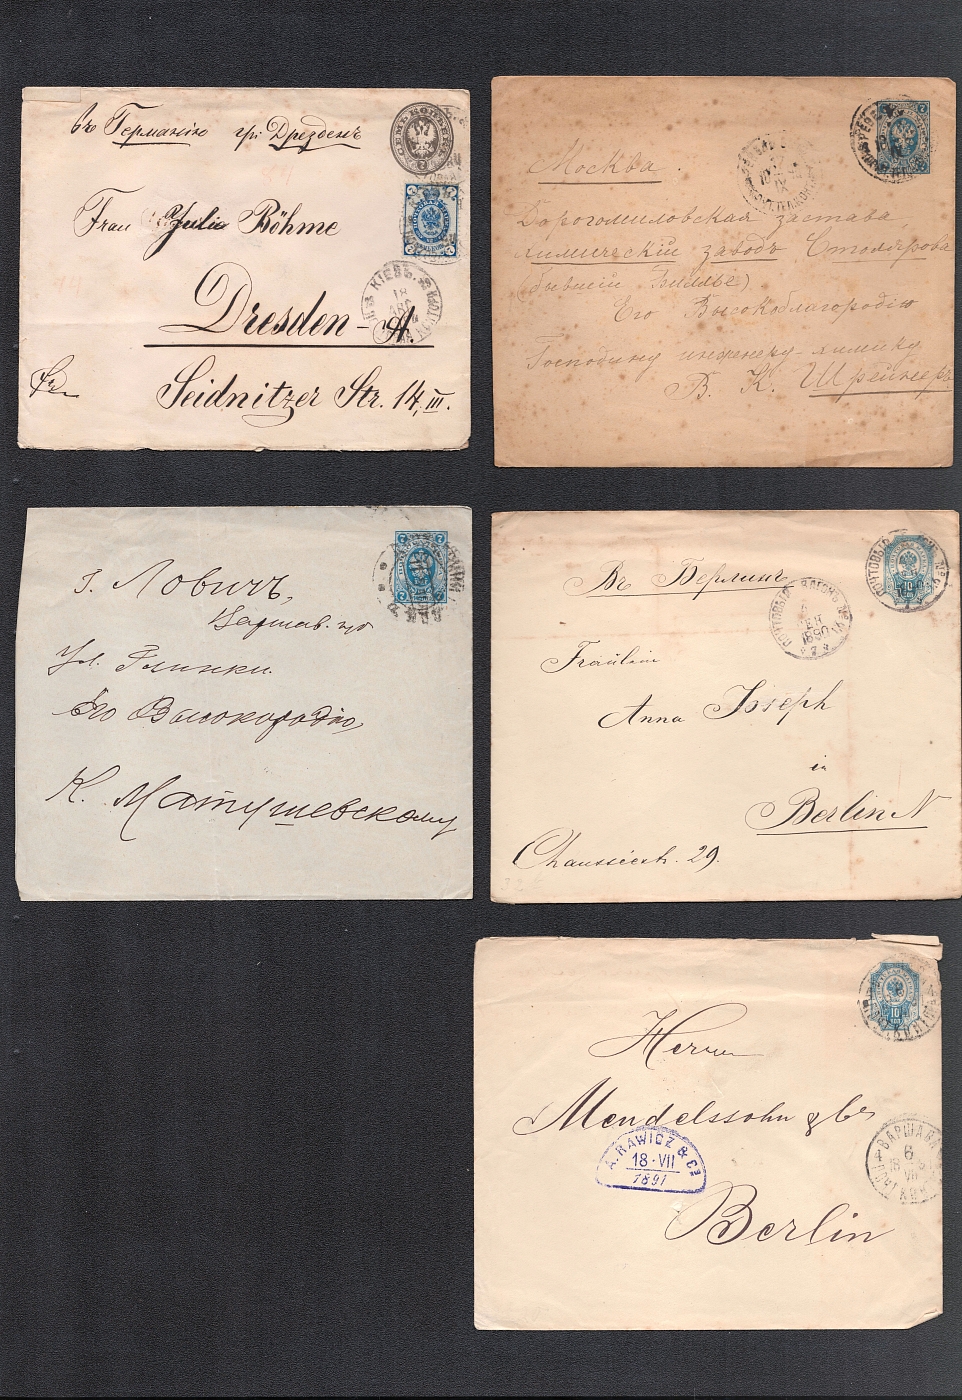 въ Германію гр: Дрезденъ
Frau Julie Böhme
Dresden-A.
Seidnitzer Str. 14, III.
КІЕВЪ
18
Москва.
Дорогомиловская застава,
химическій заводъ Столярова
(бывшій
Его Высокоблагородію
Господину инженеру-химику
В. К. Шрейнеръ
г. Ловичъ,
Варшав. губ
Ул. Глинки.
Его Высокородію,
К. Матушевскому
Въ Берлинъ
ПОЧТОВЫЙ ВАГОНЪ
1890
Fräulein
Anna Joseph
in
Berlin N
Chausséestr. 29.
10
Herren
Mendelssohn & Co
A. RAWICZ & Co
18 - VII
1891
ВАРШАВА
6
VII
Berlin